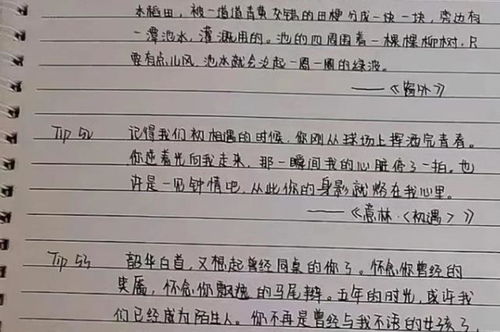 水稻田，被一道道青黄交错的田埂分成一块一块，旁边有
一潭池水，灌溉用的。池的四周围着一棵棵柳树，只
要有点儿风，池水就会边起一圈一圈的绿波。
——《窗外》
Tip 52 记得我们初相遇的时候，你刚从球场上挥洒完青春。
你逆着光向我走来，那一瞬间我的心脏停了一拍。也
许是一见钟情吧，从此你的身影就烙在我心里。
——《意林·〈初遇〉》
Tip 53 韶华白首，又想起曾经同桌的你了。怀念你曾经的
笑靥，怀念你飘逸的马尾辫。五年的时光，或许我
们已经成为陌生人。你不再是曾经与我不语的女孩了，